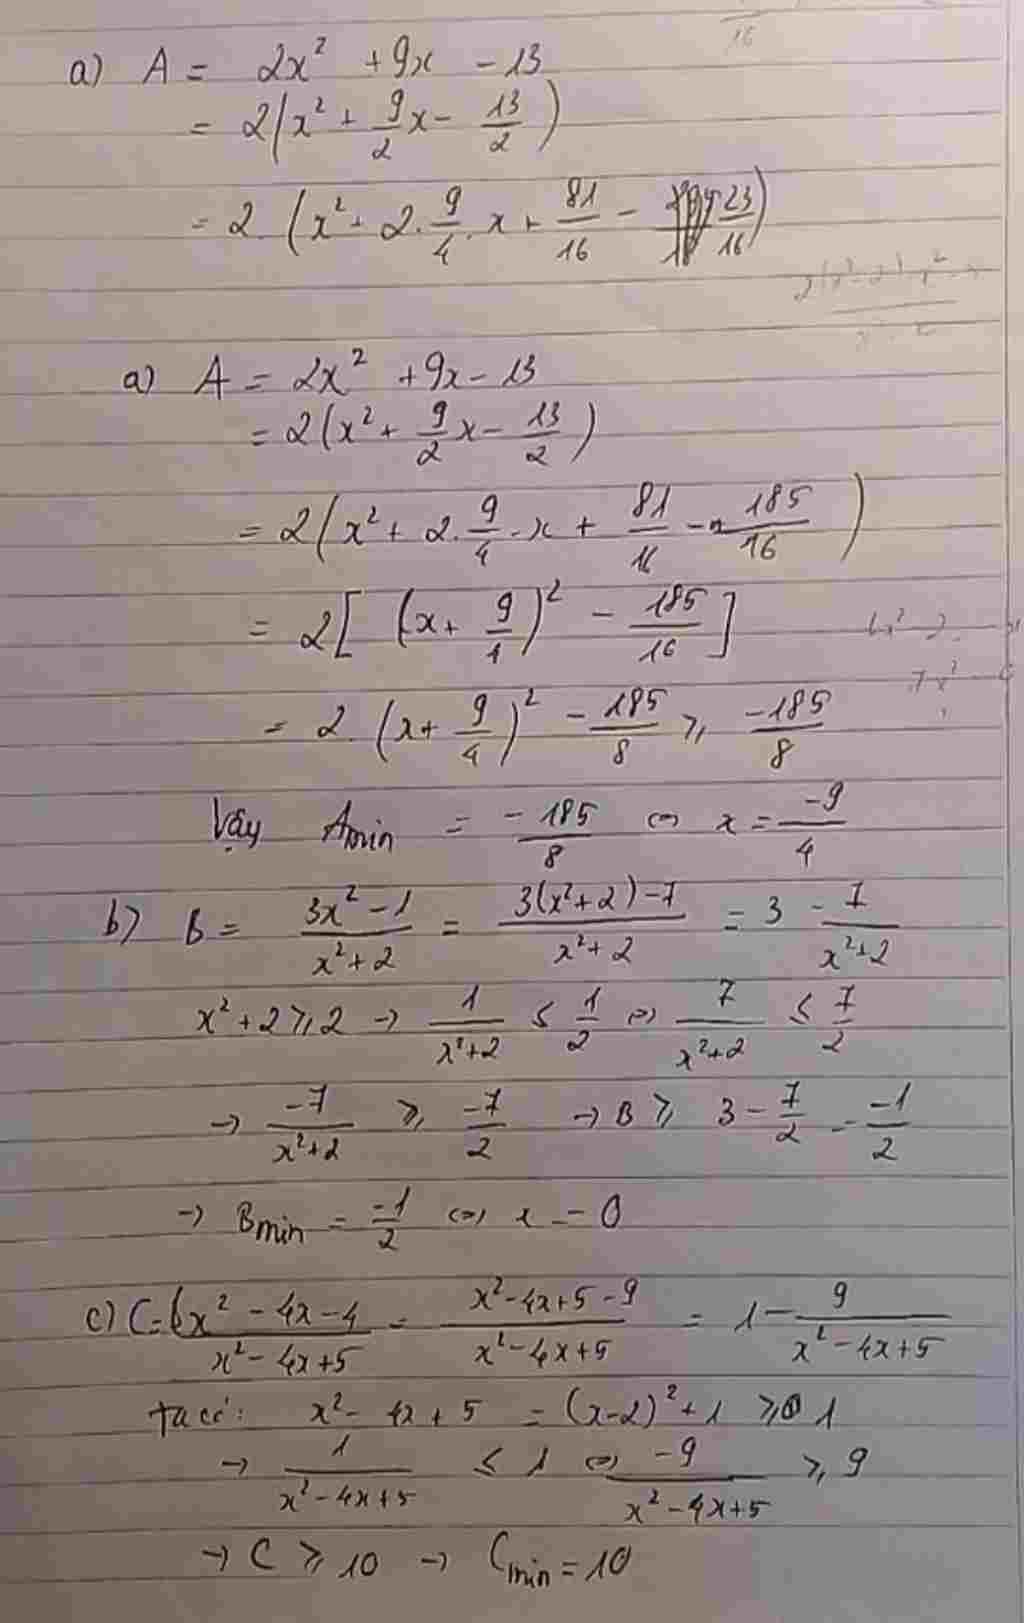 a) A = 2x² + 9x - 13
= 2(x² + 9/2 x - 13/2)
= 2. (x² + 2. 9/4 . x + 81/16 - 23/16)
a) A = 2x² + 9x - 13
= 2(x² + 9/2 x - 13/2)
= 2(x² + 2. 9/4 . x + 81/16 - 185/16)
= 2[(x + 9/4)² - 185/16]
= 2. (x + 9/4)² - 185/8 ≥ -185/8
Vậy Amin = -185/8 ⇔ x = -9/4
b) B = (3x² - 1)/(x² + 2) = (3(x² + 2) - 7)/(x² + 2) = 3 - 7/(x² + 2)
x² + 2 ≥ 2 → 1/(x² + 2) ≤ 1/2 ⇔ 7/(x² + 2) ≤ 7/2
→ -7/(x² + 2) ≥ -7/2 → B ≥ 3 - 7/2 = -1/2
→ Bmin = -1/2 ⇔ x = 0
c) C = (x² - 4x - 4)/(x² - 4x + 5) = (x² - 4x + 5 - 9)/(x² - 4x + 5) = 1 - 9/(x² - 4x + 5)
ta có: x² - 4x + 5 = (x - 2)² + 1 ≥ 1
→ 1/(x² - 4x + 5) ≤ 1 ⇔ -9/(x² - 4x + 5) ≥ 9
→ C ≥ 10 → Cmin = 10